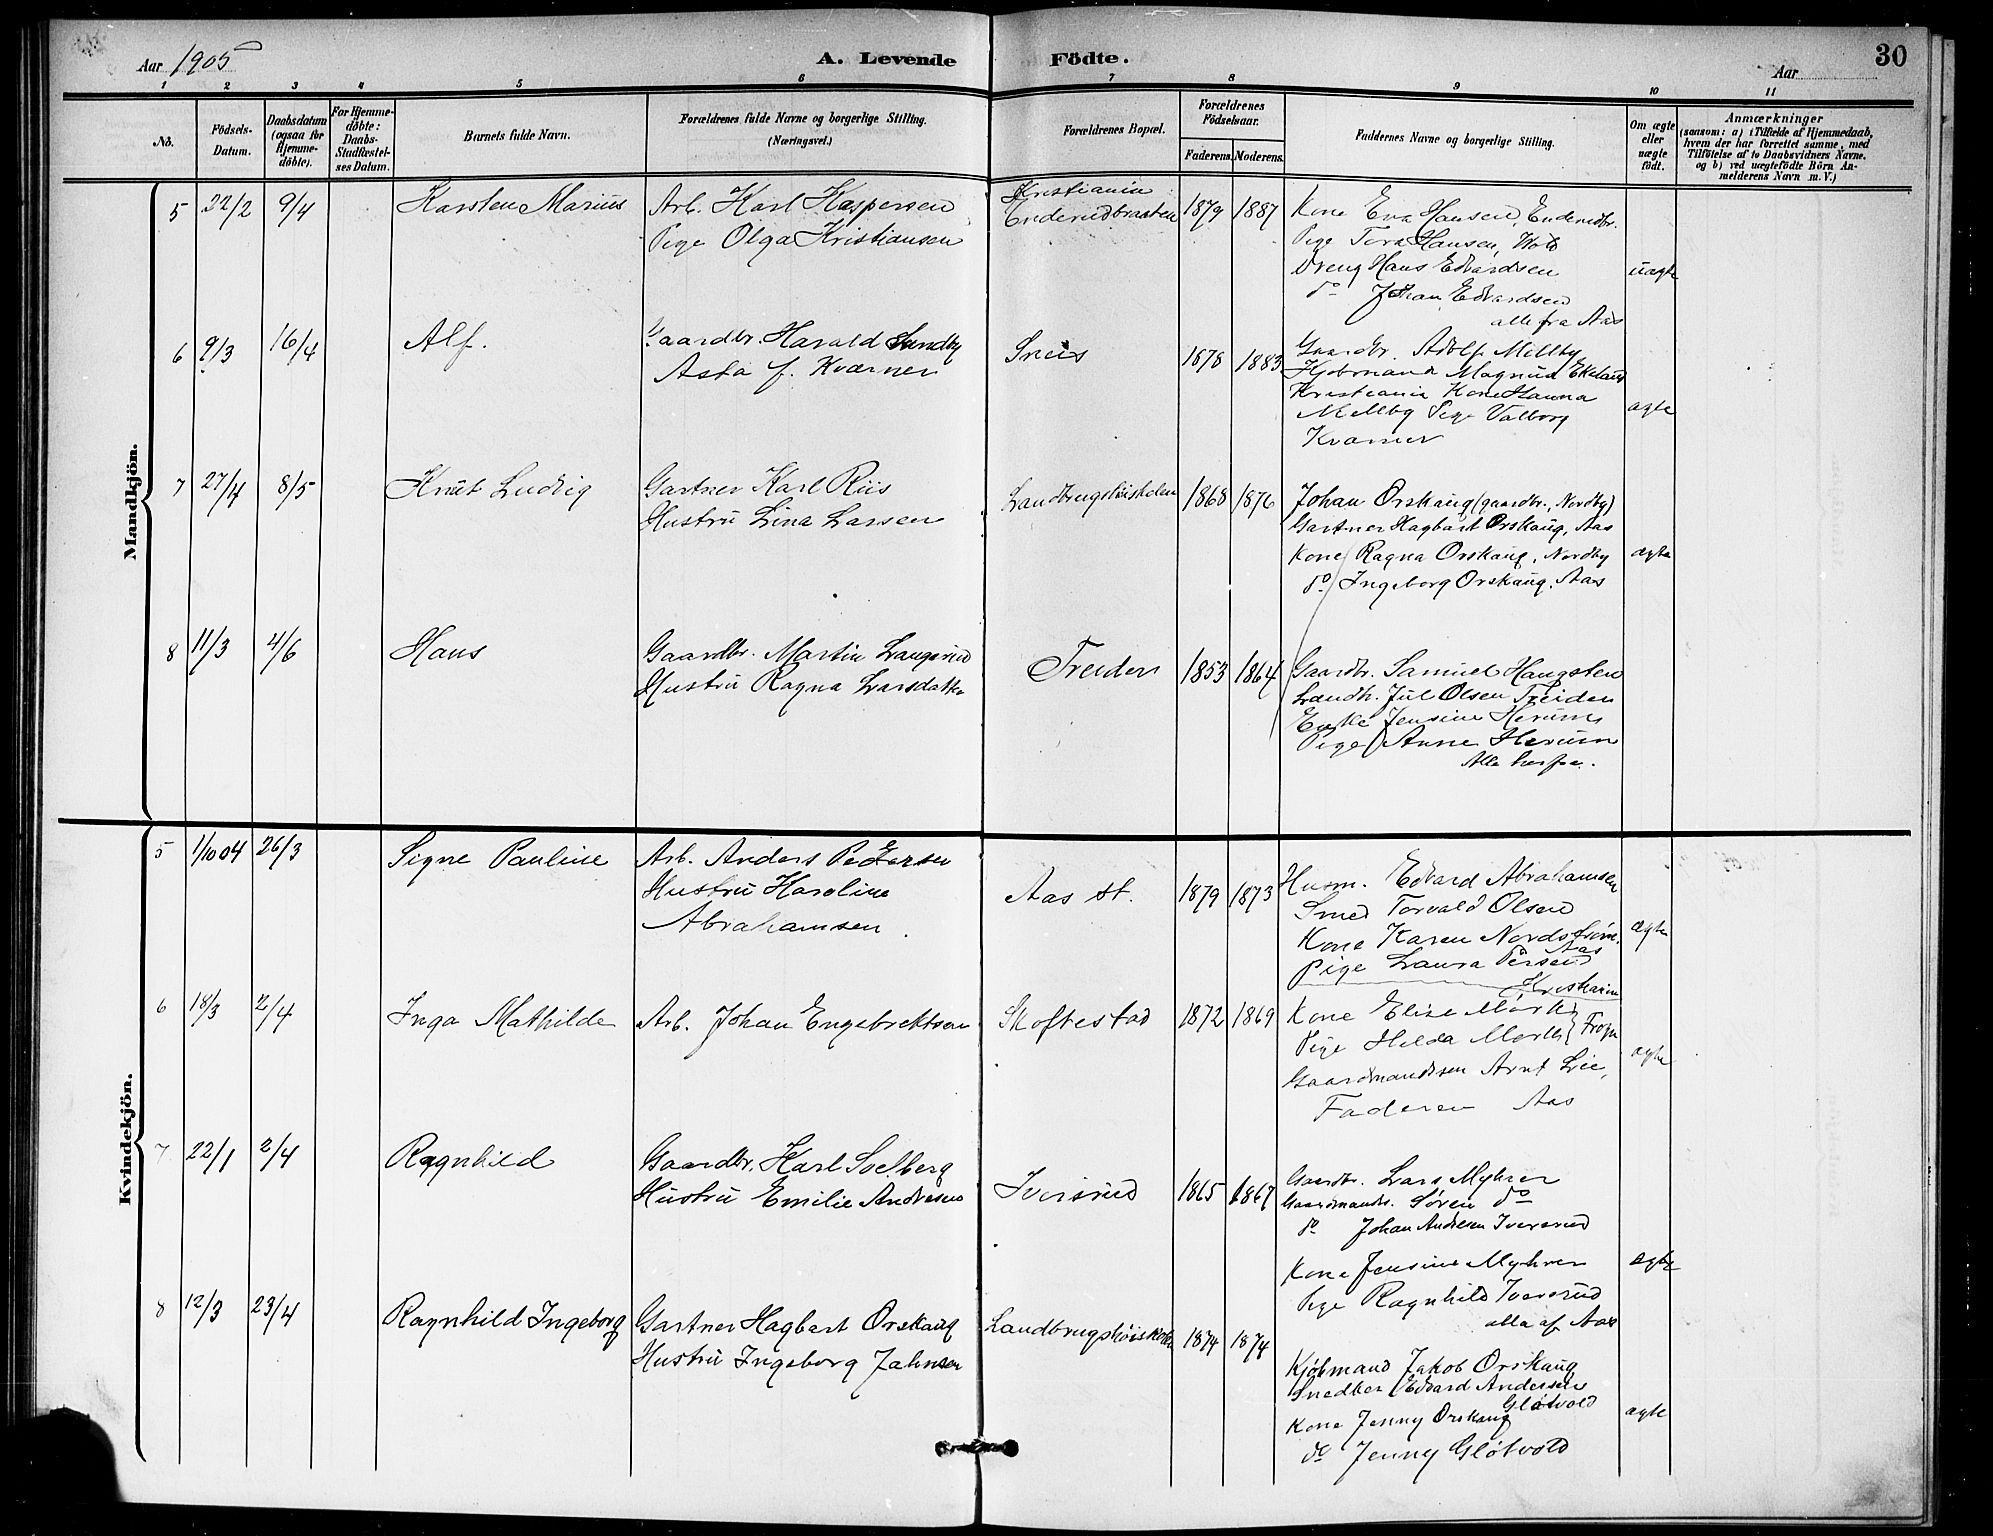 Aar 1905
A. Levende Födte.
30
Aar
1 2 3 4 5 6 7 8 9 10 11
No.
Födsels-Datum.
Daabsdatum (ogsaa for Hjemme-döbte).
For Hjemme-döbte: Daabs-Stadfæstel-ses Datum.
Barnets fulde Navn.
Forældrenes fulde Navne og borgerlige Stilling.
(Næringsvei.)
Forældrenes Bopæl.
Forældrenes Födselsaar.
Faderens. Moderens.
Faddernes Navne og borgerlige Stilling.
Om ægte eller uægte födt.
Anmærkninger
(saasom: a) i Tilfælde af Hjemmedaab,
hvem der har forrettet samme, med
Tilföielse af to Daabsvidners Navne,
og b) ved uægtefödte Börn An-
melderens Navn m. V.)
Mandkjön.
5 22/2 9/4 Karsten Marius
Arb. Karl Kaspersen
Pige Olga Kristiansen
Kristiania
Enderudbraaten 1879 1887
Kone Eva Hansen, Enderudbr.
Pige Tora Hansen,
Dreng Hans Edvardsen
do Johan Edvardsen
alle fra Aas
uægte
6 9/3 16/4 Alf.
Gaardbr. Harald Sundby
Asta f. Kværner
Sneis 1878 1883
Gaardbr. Adolf Mellby
Kjøbmand Magnus Ekeland
Kristiania Kone Hanna
Mellby Pige Valborg
Kværner
ægte
7 27/4 8/5 Knut Ludvig
Gartner Karl Riis
Hustru Lina Larsen
Landbrugshöiskolen 1868 1876
Johan Orskaug (gaardbr., Nordby)
Gartner Hagbart Orskaug, Aas
Kone Ragna Orskaug, Nordby
do Ingeborg Orskaug, Aas
ægte
8 11/3 4/6 Hans
Gaardbr. Martin Langerud
Hustru Ragna Larsdatter
Treider 1853 1864
Gaardbr. Samuel Haugsten
Landh. Jul Olsen Treider
Enke Jensine Herum
Pige Anne Herum
Alle herfra.
Kvindekjön.
5 1/10 04 26/3 Signe Pauline
Arb. Anders Pedersen
Hustru Karoline
Abrahamsen
Aas st. 1879 1873
Husm. Edvard Abrahamsen
Smed Torvald Olsen
Kone Karen Nordstrøm,
Aas
Pige Laura Persen
Kristiania
ægte
6 18/3 2/4 Inga Mathilde
Arb. Johan Engebrettsen
Skoftestad 1872 1869
Kone Elise Mørk
Pige Helda Mørk } Frogn
Gaardmandssøn Arnt Lie,
Faderen Aas
ægte
7 22/1 2/4 Ragnhild
Gaardbr. Karl Solberg
Hustru Emilie Andresen
Iversrud 1865 1867
Gaardbr. Lars Myhrer
Gaardmands. Søren do
do Johan Andresen Iversrud
Kone Jensine Myhrer
Pige Ragnhild Iversrud
alle af Aas
ægte
8 12/3 23/4 Ragnhild Ingeborg
Gartner Hagbart Orskaug
Hustru Ingeborg Jahnsen
Landbrugshöiskolen 1874 1874
Kjøbmand Jakob Orskaug
Snedker Edvard Andersen
Gløtvold
Kone Jenny Orskaug
do Jenny Gløtvold
ægte